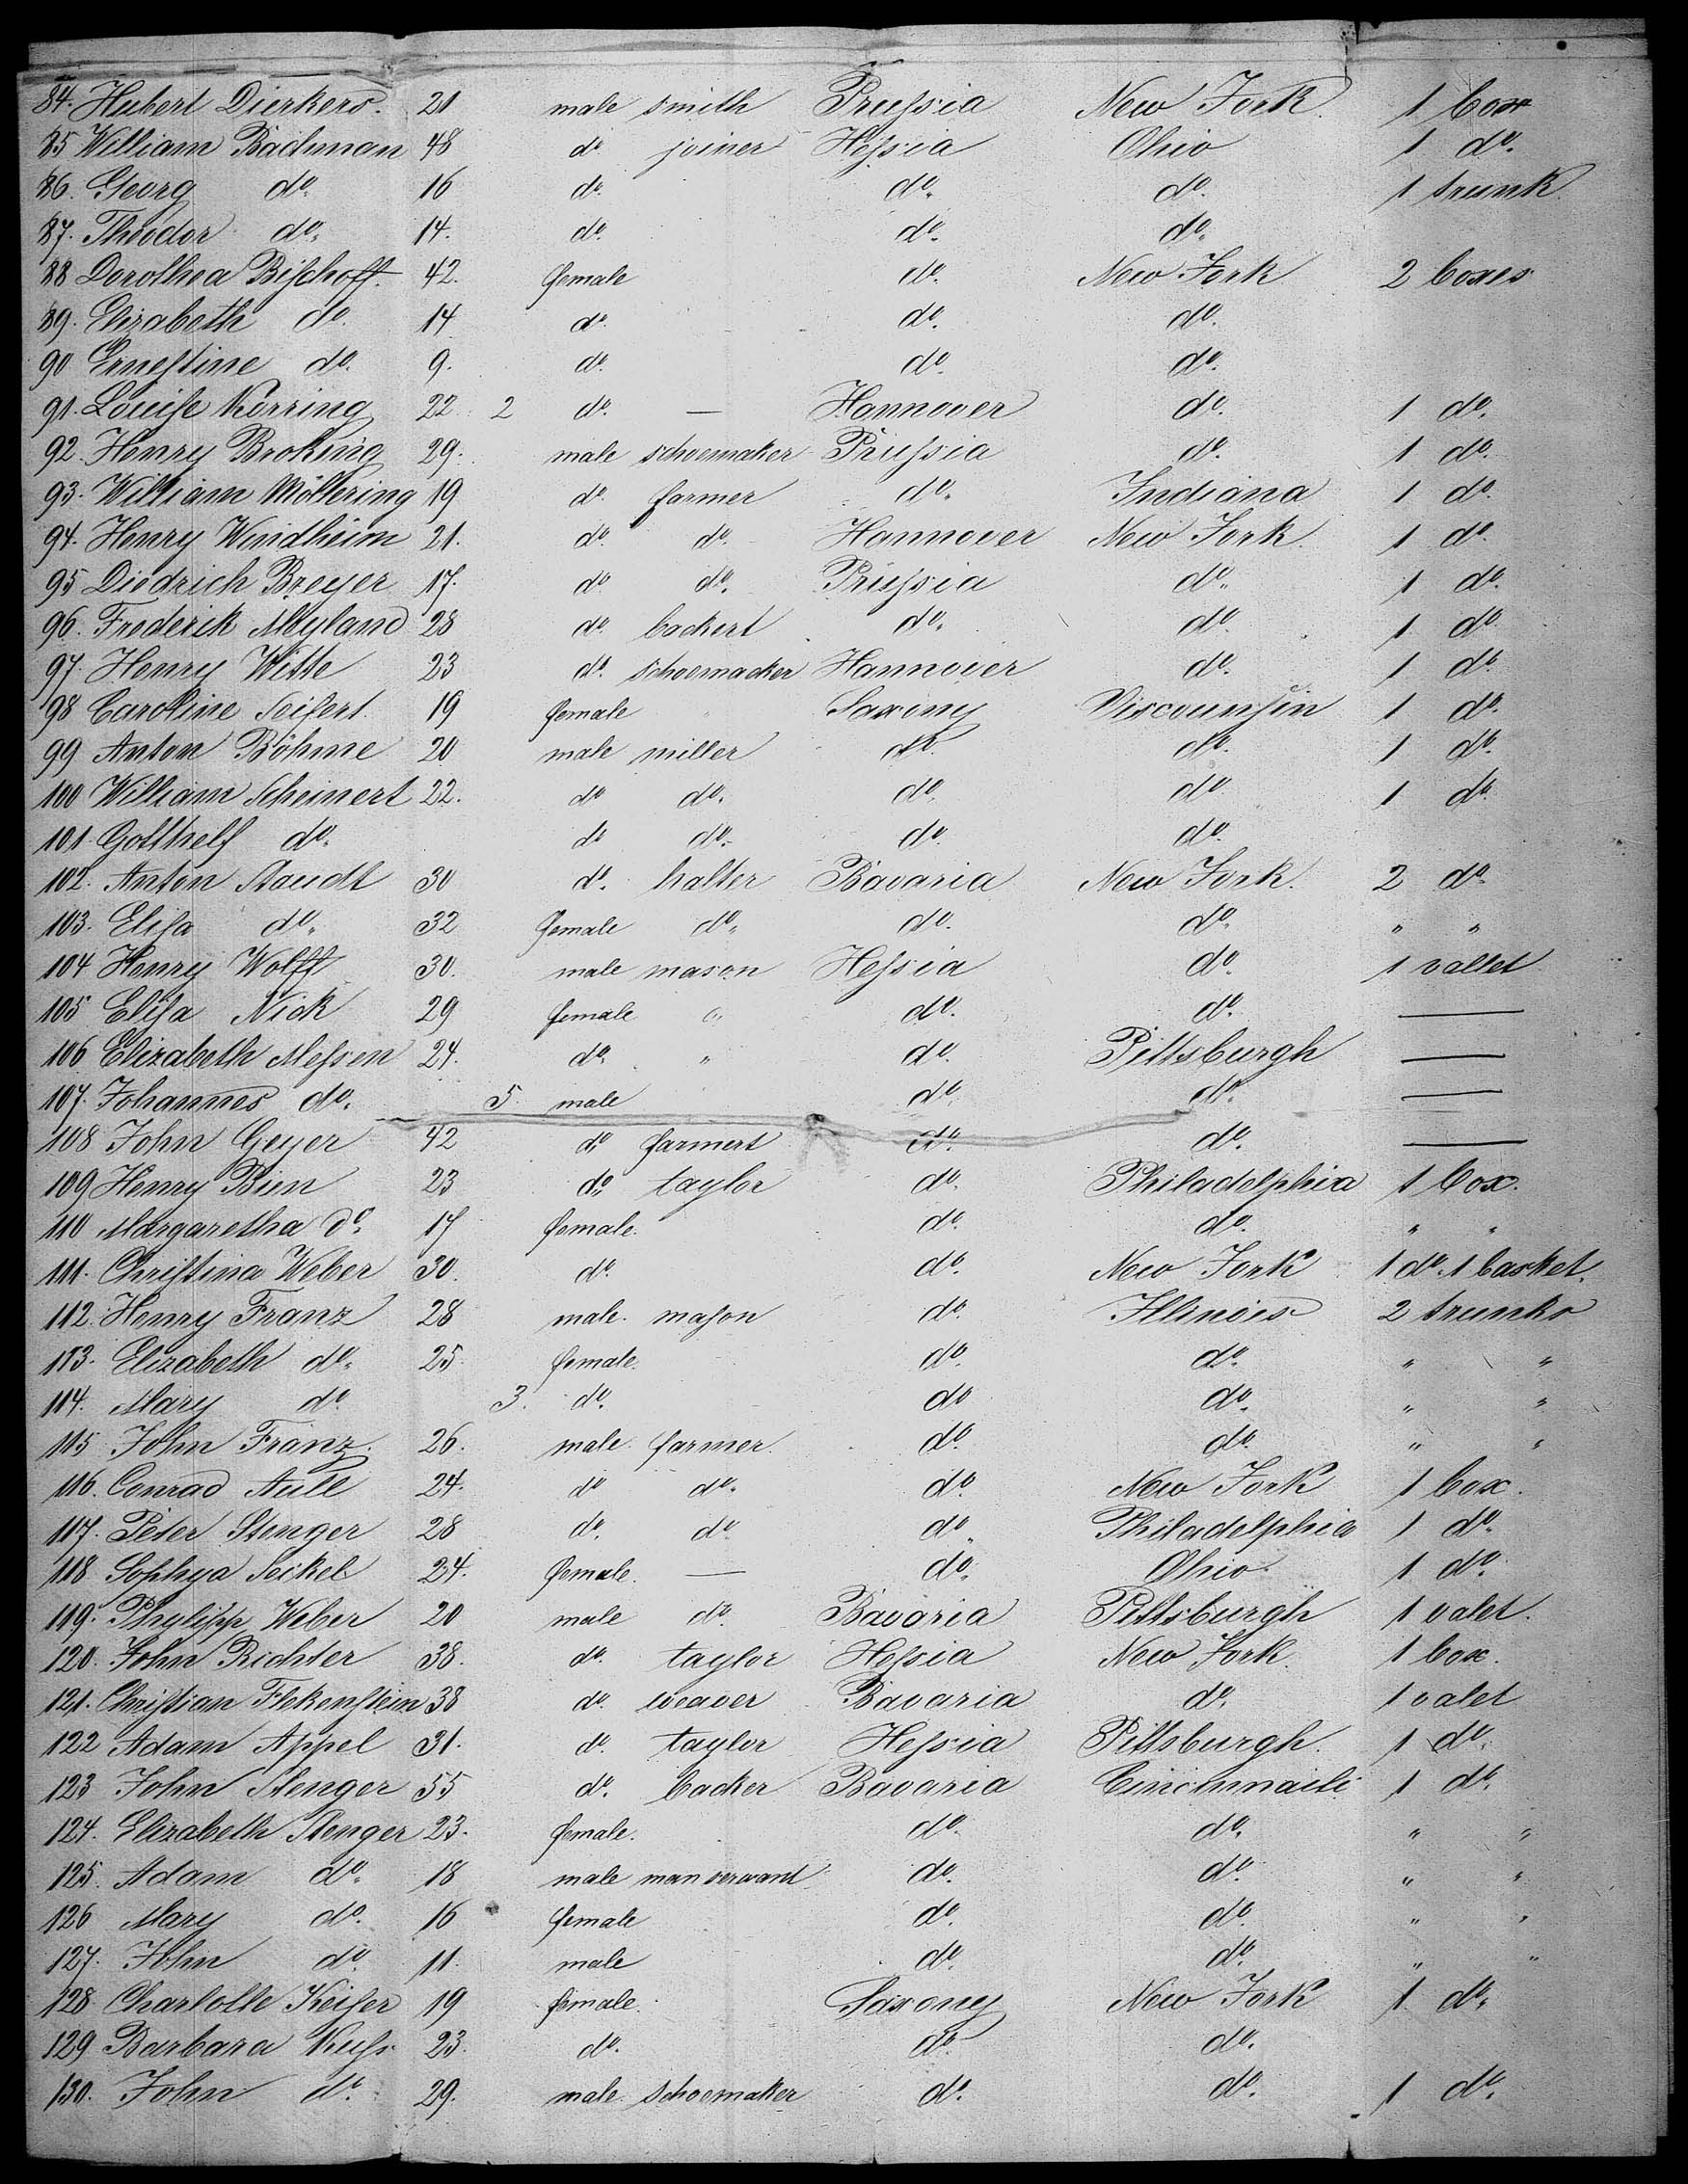 84. Hubert Dierkers. 21 male smith Prussia New York. 1 box
85 William Bachman 48 do. joiner Hessia Ohio 1 do.
86. Georg do. 16 do. do. do. 1 trunk
87. Theodor do. 14. do. do. do.
88 Dorothea Bischoff. 42. female do. New York 2 boxes
89. Elizabeth do. 14 do. do. do.
90 Ernestine do. 9. do. do. do.
91. Louise Korring 22 2 do. — Hannover do. 1 do.
92. Henry Broking 29. male schoemaker Prussia do. 1 do.
93. William Möllering 19 do. farmer do. Indiana 1 do.
94. Henry Windheim 21. do. do. Hannover New York. 1 do.
95 Diedrich Breyer 17. do do. Prussia do. 1 do.
96. Frederik Meyland 28 do. backert do. do. 1 do.
97. Henry Witte 23 do. schoemacker Hannover do. 1 do.
98 Caroline Seifert. 19 female Saxony Viscounsin 1 do.
99 Anton Böhme 20 male miller do. do. 1 do.
100 William Scheinert 22. do do. do. do 1 do.
101. Gotthelf do. do do. do. do.
102. Anton Staudt 30 do. halter Bavaria New York. 2 do.
103. Elisa do. 32 female do. do. do. " "
104 Henry Wolff 30. male mason Hessia do. 1 vallet
105 Elisa Nick 29 female " do. do. —
106 Elizabeth Messen 24. do. " do. Pittsburgh —
107. Johannes do. 5. male do. do. —
108 John Geyer 42 do farmert do. do. —
109 Henry Bien 23 do. taylor do. Philadelphia 1 box.
110 Margaretha do. 17 female. do. do. " "
111. Christina Weber 30. do. do. New York 1 do. 1 basket.
112. Henry Franz 28 male. mason do. Illinois 2 trunks
113. Elizabeth do. 25. female. do. do. " "
114. Mary do. 3. do. do do. " "
115 John Franz. 26. male. farmer. do. do. " "
116. Conrad Aull 24. do do. do. New York 1 box.
117. Peter Stenger 28 do. do. do Philadelphia 1 do.
118 Sophya Seikel 24. female. — do. Ohio. 1 do.
119. Phylipp Weber 20 male do. Bavaria Pittsburgh 1 valet.
120. John Richter 38. do. taylor Hessia New York. 1 box.
121. Christian Flekenstein 38 do. weaver Bavaria do. 1 valet
122 Adam Appel 31. do. taylor Hessia Pittsburgh. 1 do.
123 John Stenger 55 do. backer Bavaria Cincinnaiti 1 do.
124. Elizabeth Stenger 23. female. do. do. " "
125. Adam do. 18 male man servant do. do. " "
126 Mary do. 16 female do. do. " "
127. John do. 11. male do. do. " "
128. Charlotte Keiser 19 female. Saxony New York 1 do.
129 Barbara Kuss 23. do. do. do.
130. John do. 29. male. schoemaker do. do. 1 do.